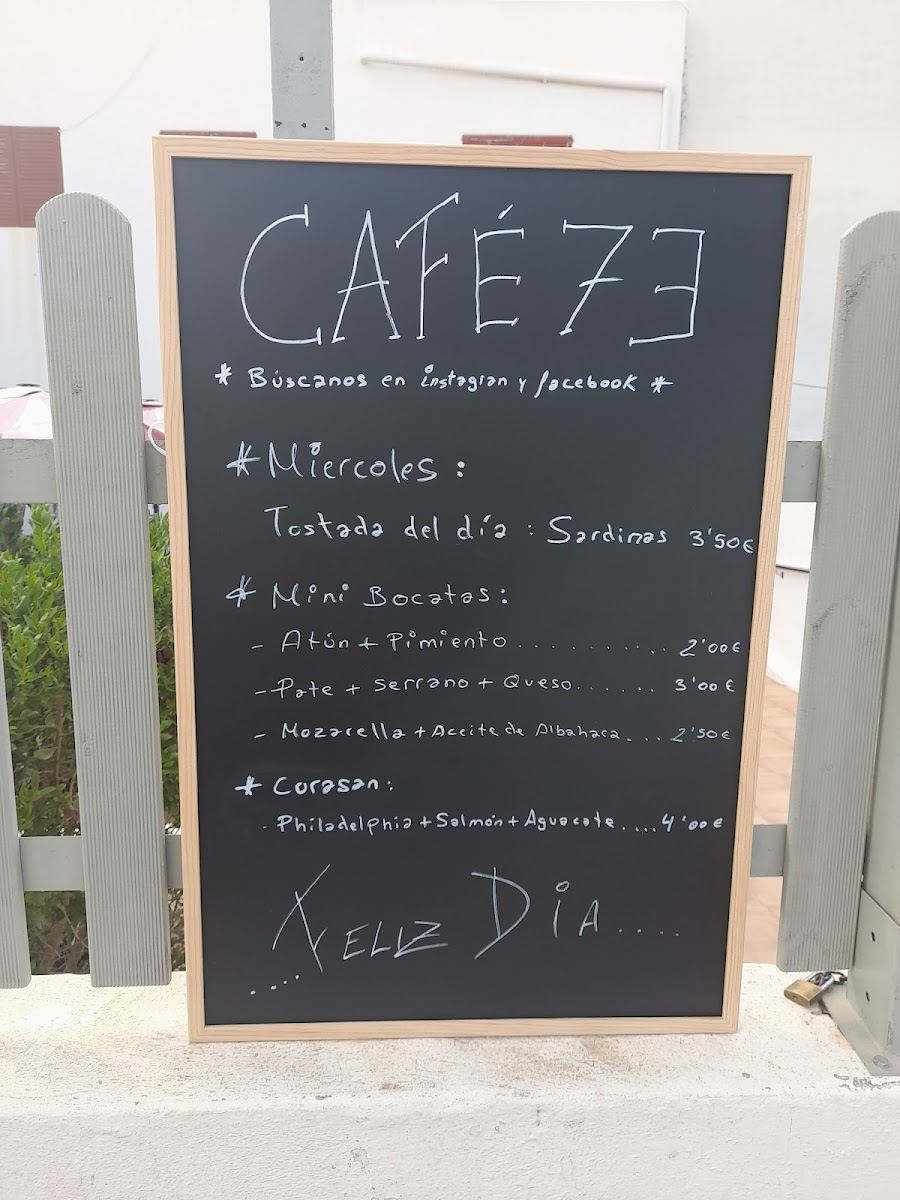 CAFÉ 73
* Búscanos en instagran y facebook *
* Miercoles :
Tostada del día : Sardinas 3'50€
* Mini Bocatas :
- Atún + Pimiento........... 2'00€
- Pate + Serrano + Queso....... 3'00€
- Mozarella + Aceite de Albahaca.... 2'50€
* Corasan :
- Philadelphia + Salmón + Aguacate..... 4'00€
....Feliz Dia....